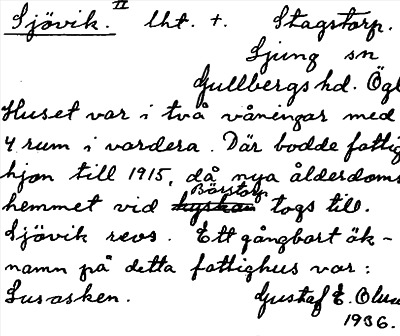 Sjövik. II lht. +. Stagstorp.
Ljung sn
Gullbergs hd. Ögl
Huset var i två våningar med
4 rum i vardera. Där bodde fattig
hjon till 1915, då nya ålderdoms
hemmet vid Börstorp togs till.
Sjövik revs. Ett gångbart ök-
namn på detta fattighus var:
Lusasken. Gustaf E. Olu
1936.